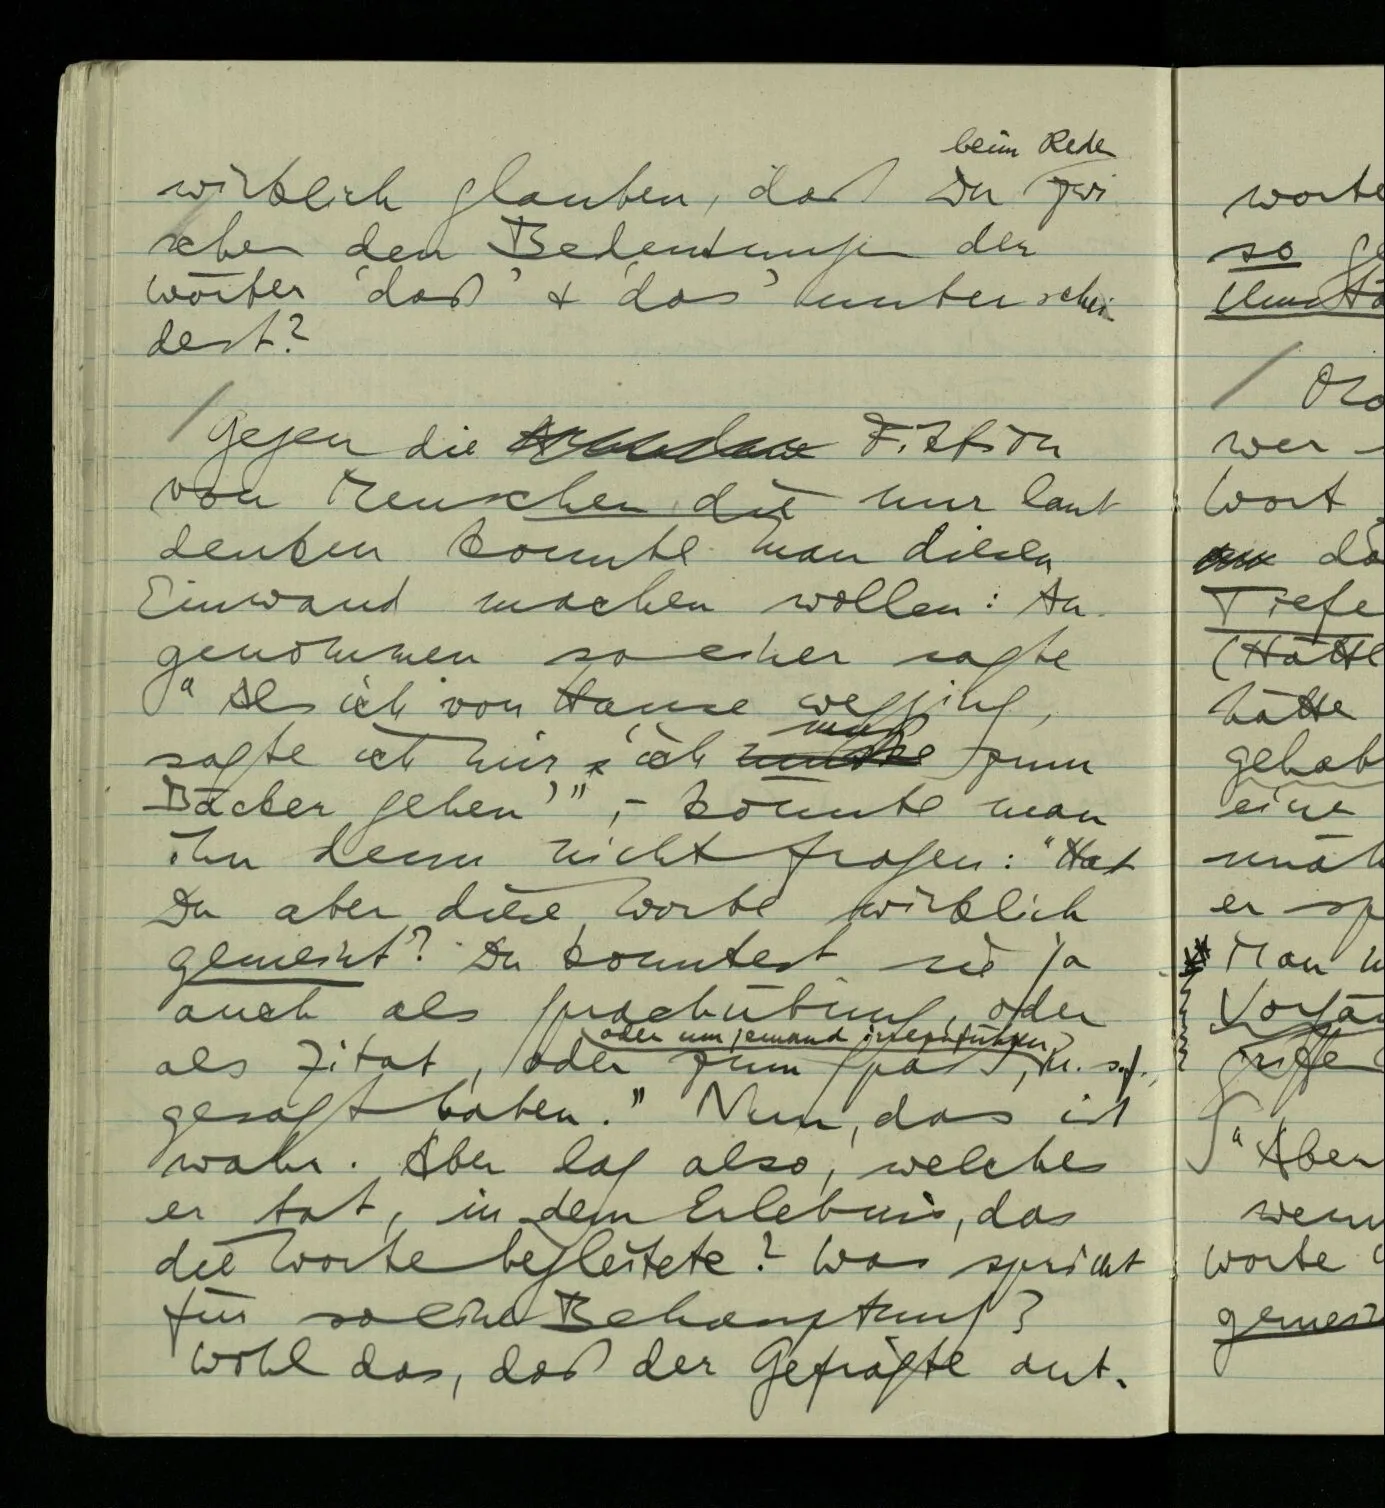 beim Rede
wirklich glauben, daß Du zwi
schen den Bedeutungen der
Wörter 'daß' & 'das' unterschei
dest?
/ Gegen die Fiktion
von Menschen die nur laut
denken könnte man diesen
Einwand machen wollen: An-
genommen so einer sagte
"Als ich von Hause wegging,
muß
sagte ich mir, 'ich mußte zum
Bäcker gehen'", – könnte man
ihn denn nicht fragen: "Hat
Du aber diese Worte wirklich
gemeint? Du konntest sie ja
auch als Sprachübung, oder
oder um jemand irrezuführen,
als Zitat, oder zum Spaß, u.s.f.,
gesagt haben." Nun, das ist
wahr. Aber lag also, welches
er tat, in dem Erlebnis, das
die Worte begleitete? Was spricht
für so eine Behauptung?
Wohl das, daß der Gefragte ant-
worte
so
/
wer
Wort
Tiefe
(Hätte
hätte
gehab
eine
er sp
* Man
Vorgän
"Aber
wenn
Worte
gemein